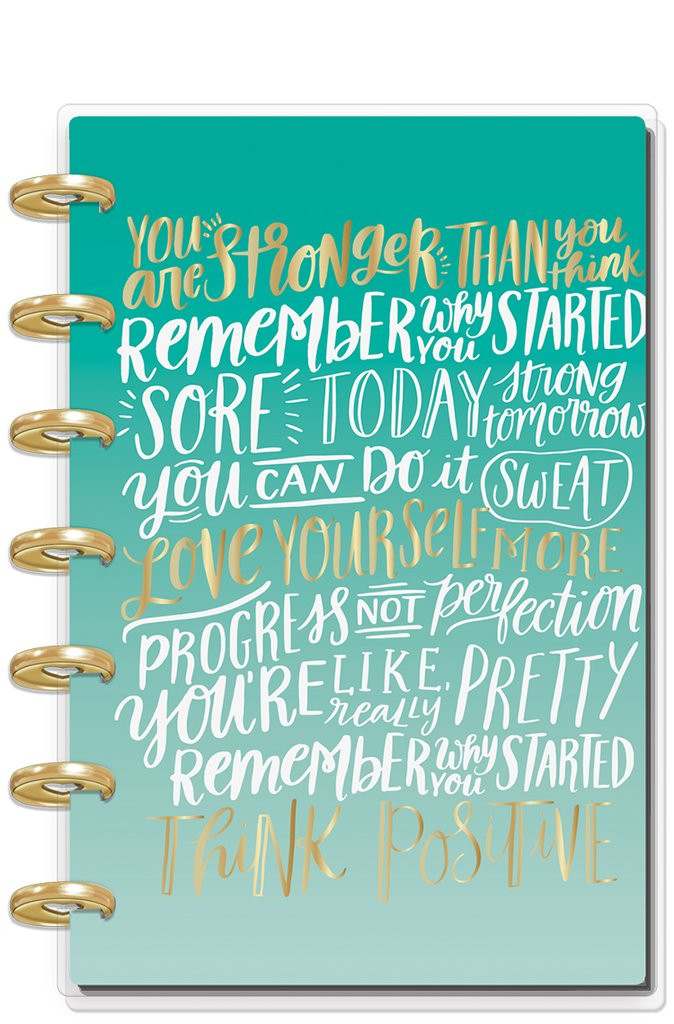 YOU are STRONGER THAN you think
REMEMBER why you STARTED
SORE TODAY strong tomorrow
you CAN DO it SWEAT
LOVE YOURSELF MORE
PROGRESS NOT perfection
YOU'RE LIKE, really PRETTY
REMEMBER why you STARTED
THINK POSITIVE